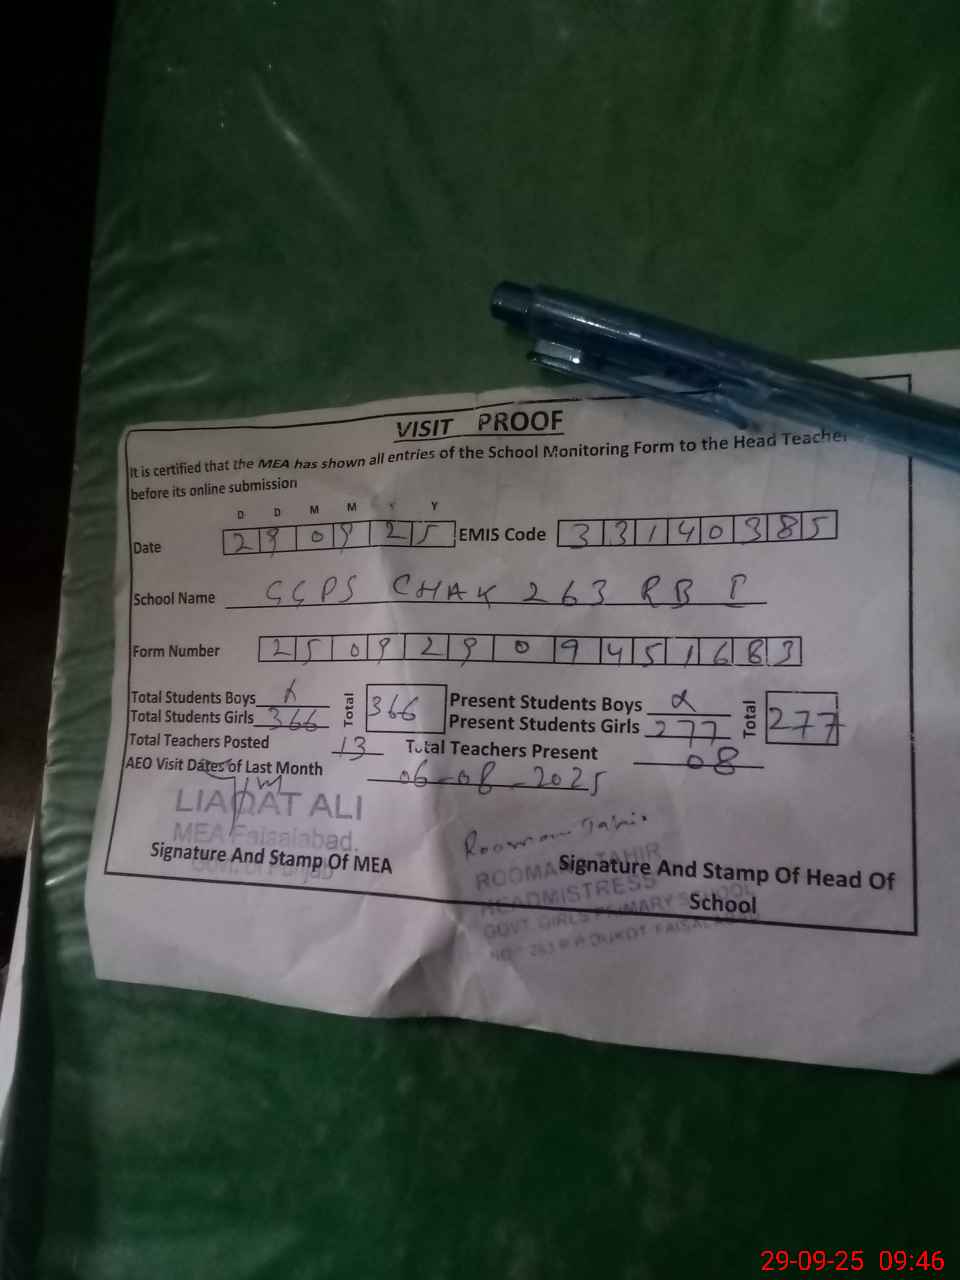 VISIT PROOF
It is certified that the MEA has shown all entries of the School Monitoring Form to the Head Teacher
before its online submission
D D M M Y Y
Date 29 09 25 EMIS Code 33140385
School Name GGPS CHAK 263 RB I
Form Number 25092909451683
Total Students Boys x Total 366 Present Students Boys x Total 277
Total Students Girls 366 Present Students Girls 277
Total Teachers Posted 13 Total Teachers Present 08
AEO Visit Dates of Last Month 06-08-2025
LIAQAT ALI
MEA Faisalabad.
Govt. of Punjab
Signature And Stamp Of MEA
Rooman Tahir
ROOMAN TAHIR
HEADMISTRESS
GOVT. GIRLS PRIMARY SCHOOL
Signature And Stamp Of Head Of
School
29-09-25 09:46